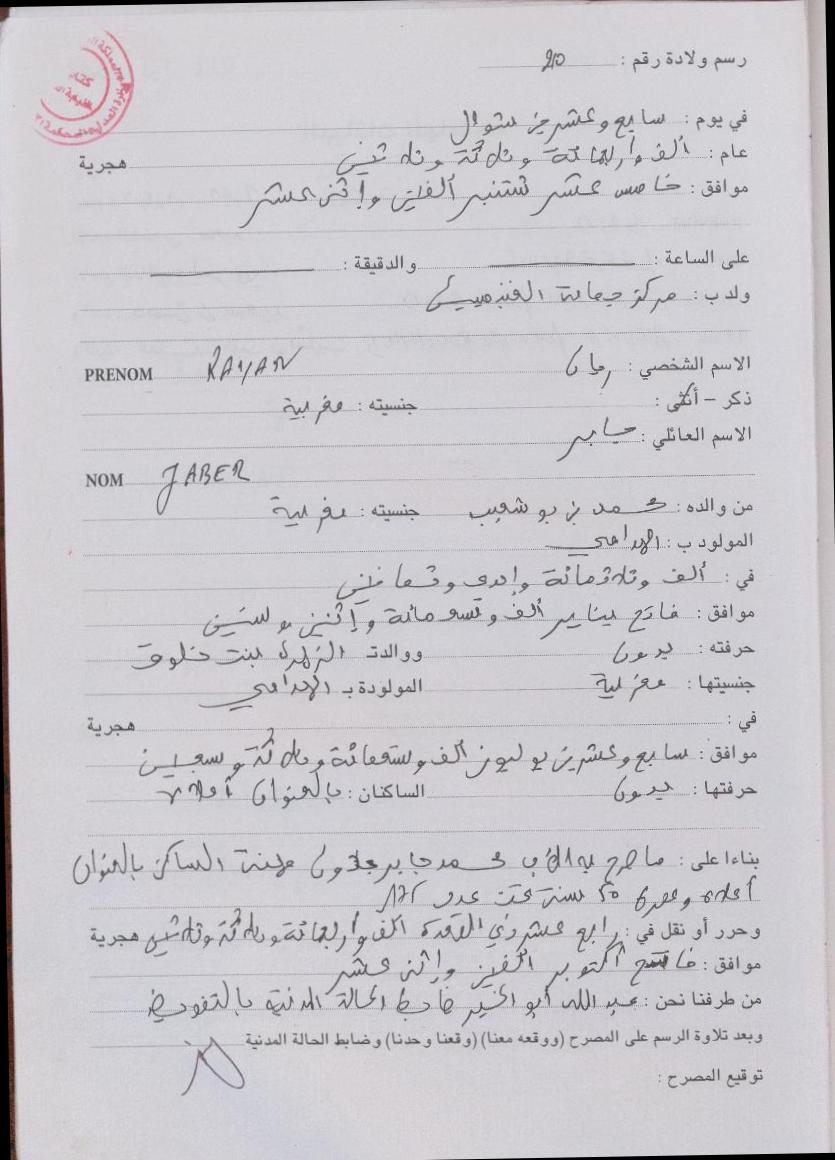 رسم ولادة رقم : 210
في يوم : سابع وعشرين شوال
عام : ألف وأربعمائة وثلاثة وثلاثين هجرية
موافق : خامس عشر شتنبر ألفين وإثني عشر
على الساعة : والدقيقة :
ولد ب : مركز جماعة
الاسم الشخصي : ريان
PRENOM RAYAN
ذكر – أنثى : جنسيته : مغربية
الاسم العائلي : جابر
NOM JABER
من والده : محمد بن بوشعيب جنسيته : مغربية
المولود ب :
في : ألف وثلاثمائة وإحدى وثمانين
موافق : فاتح يناير ألف وتسعمائة وإثنين وستين
حرفته : بدون ووالدته الزهرة بنت خلوق
جنسيتها : مغربية المولودة بـ
في : هجرية
موافق : سابع وعشرين يوليوز ألف وتسعمائة وثلاثة وسبعين
حرفتها : بدون الساكنان : بالعنوان أعلاه
بناءا على : ما صرح به الأب محمد جابر بدون مهنة الساكن بالعنوان
أعلاه وعمره 50 سنة تحت عدد
وحرر أو نقل في : رابع عشر ذي القعدة ألف وأربعمائة وثلاثة وثلاثين هجرية
موافق : فاتح أكتوبر ألفين وإثني عشر
من طرفنا نحن : عبد الله أبو الخير ضابط الحالة المدنية بالتفويض
وبعد تلاوة الرسم على المصرح (ووقعه معنا) (وقعنا وحدنا) وضابط الحالة المدنية
توقيع المصرح :